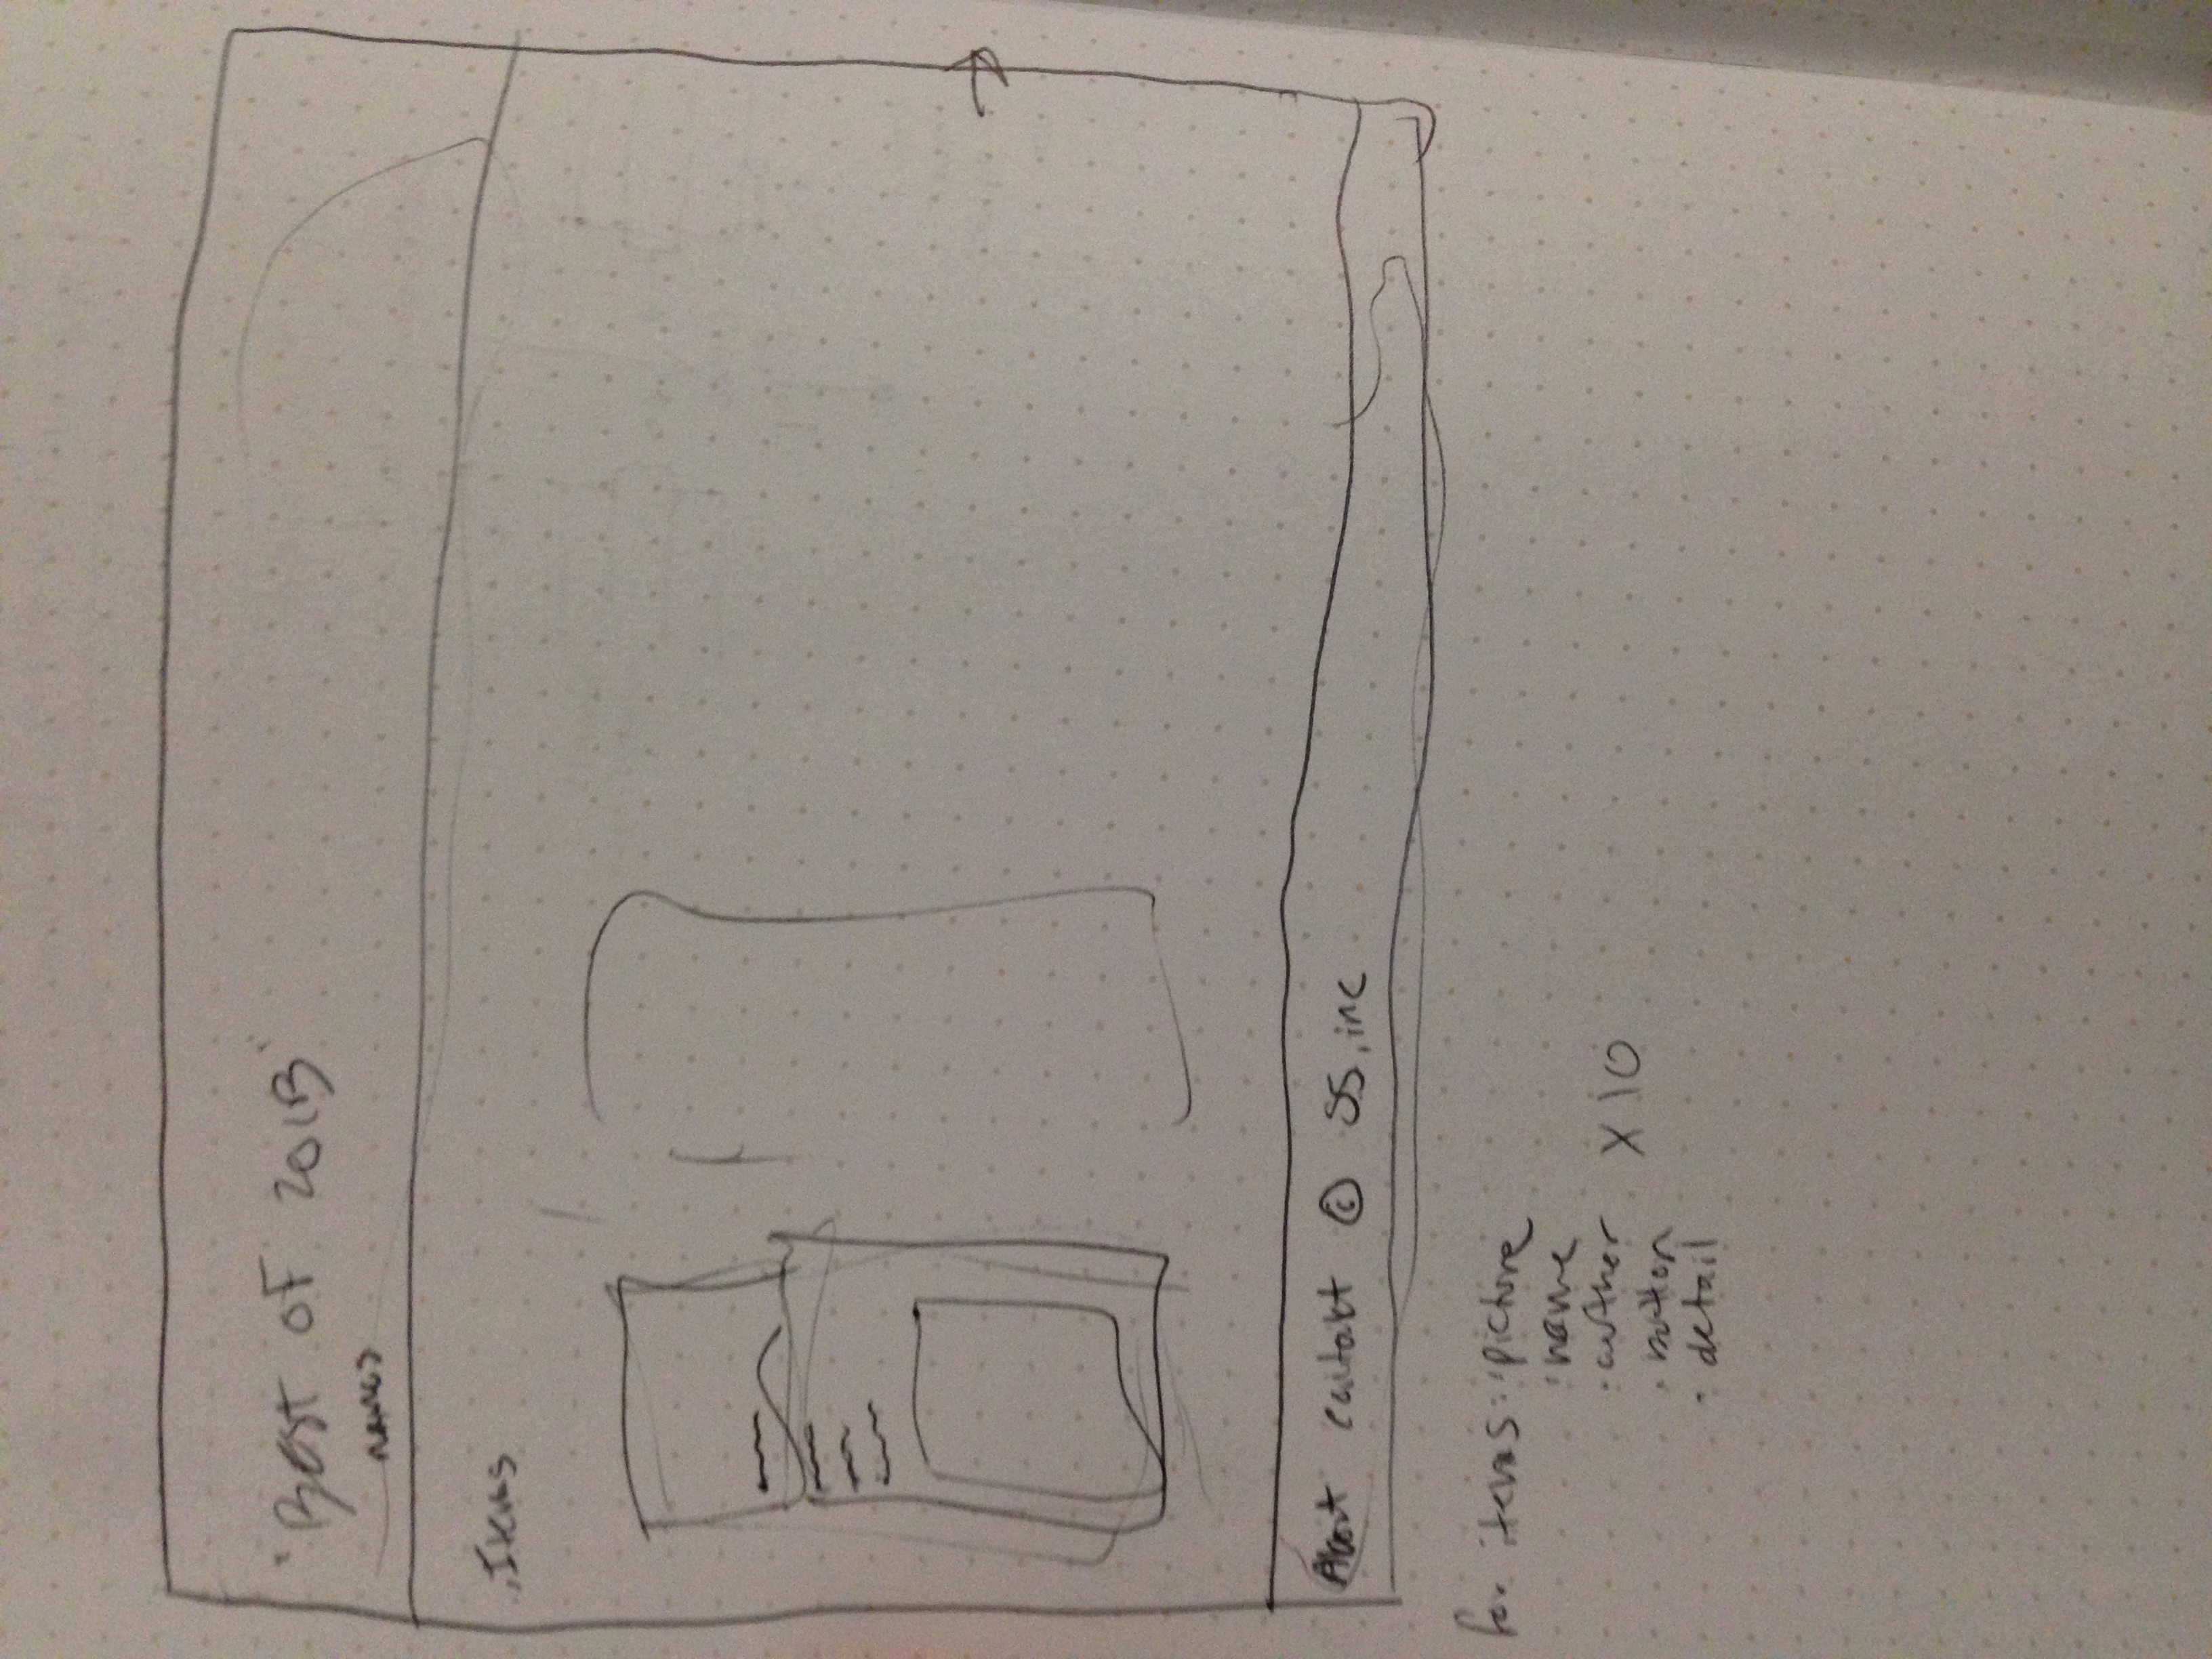 "Best of 2013"
names
Items
About contakt © SS, inc
for items: · picture
· name
· auther
x10
· button
· detail